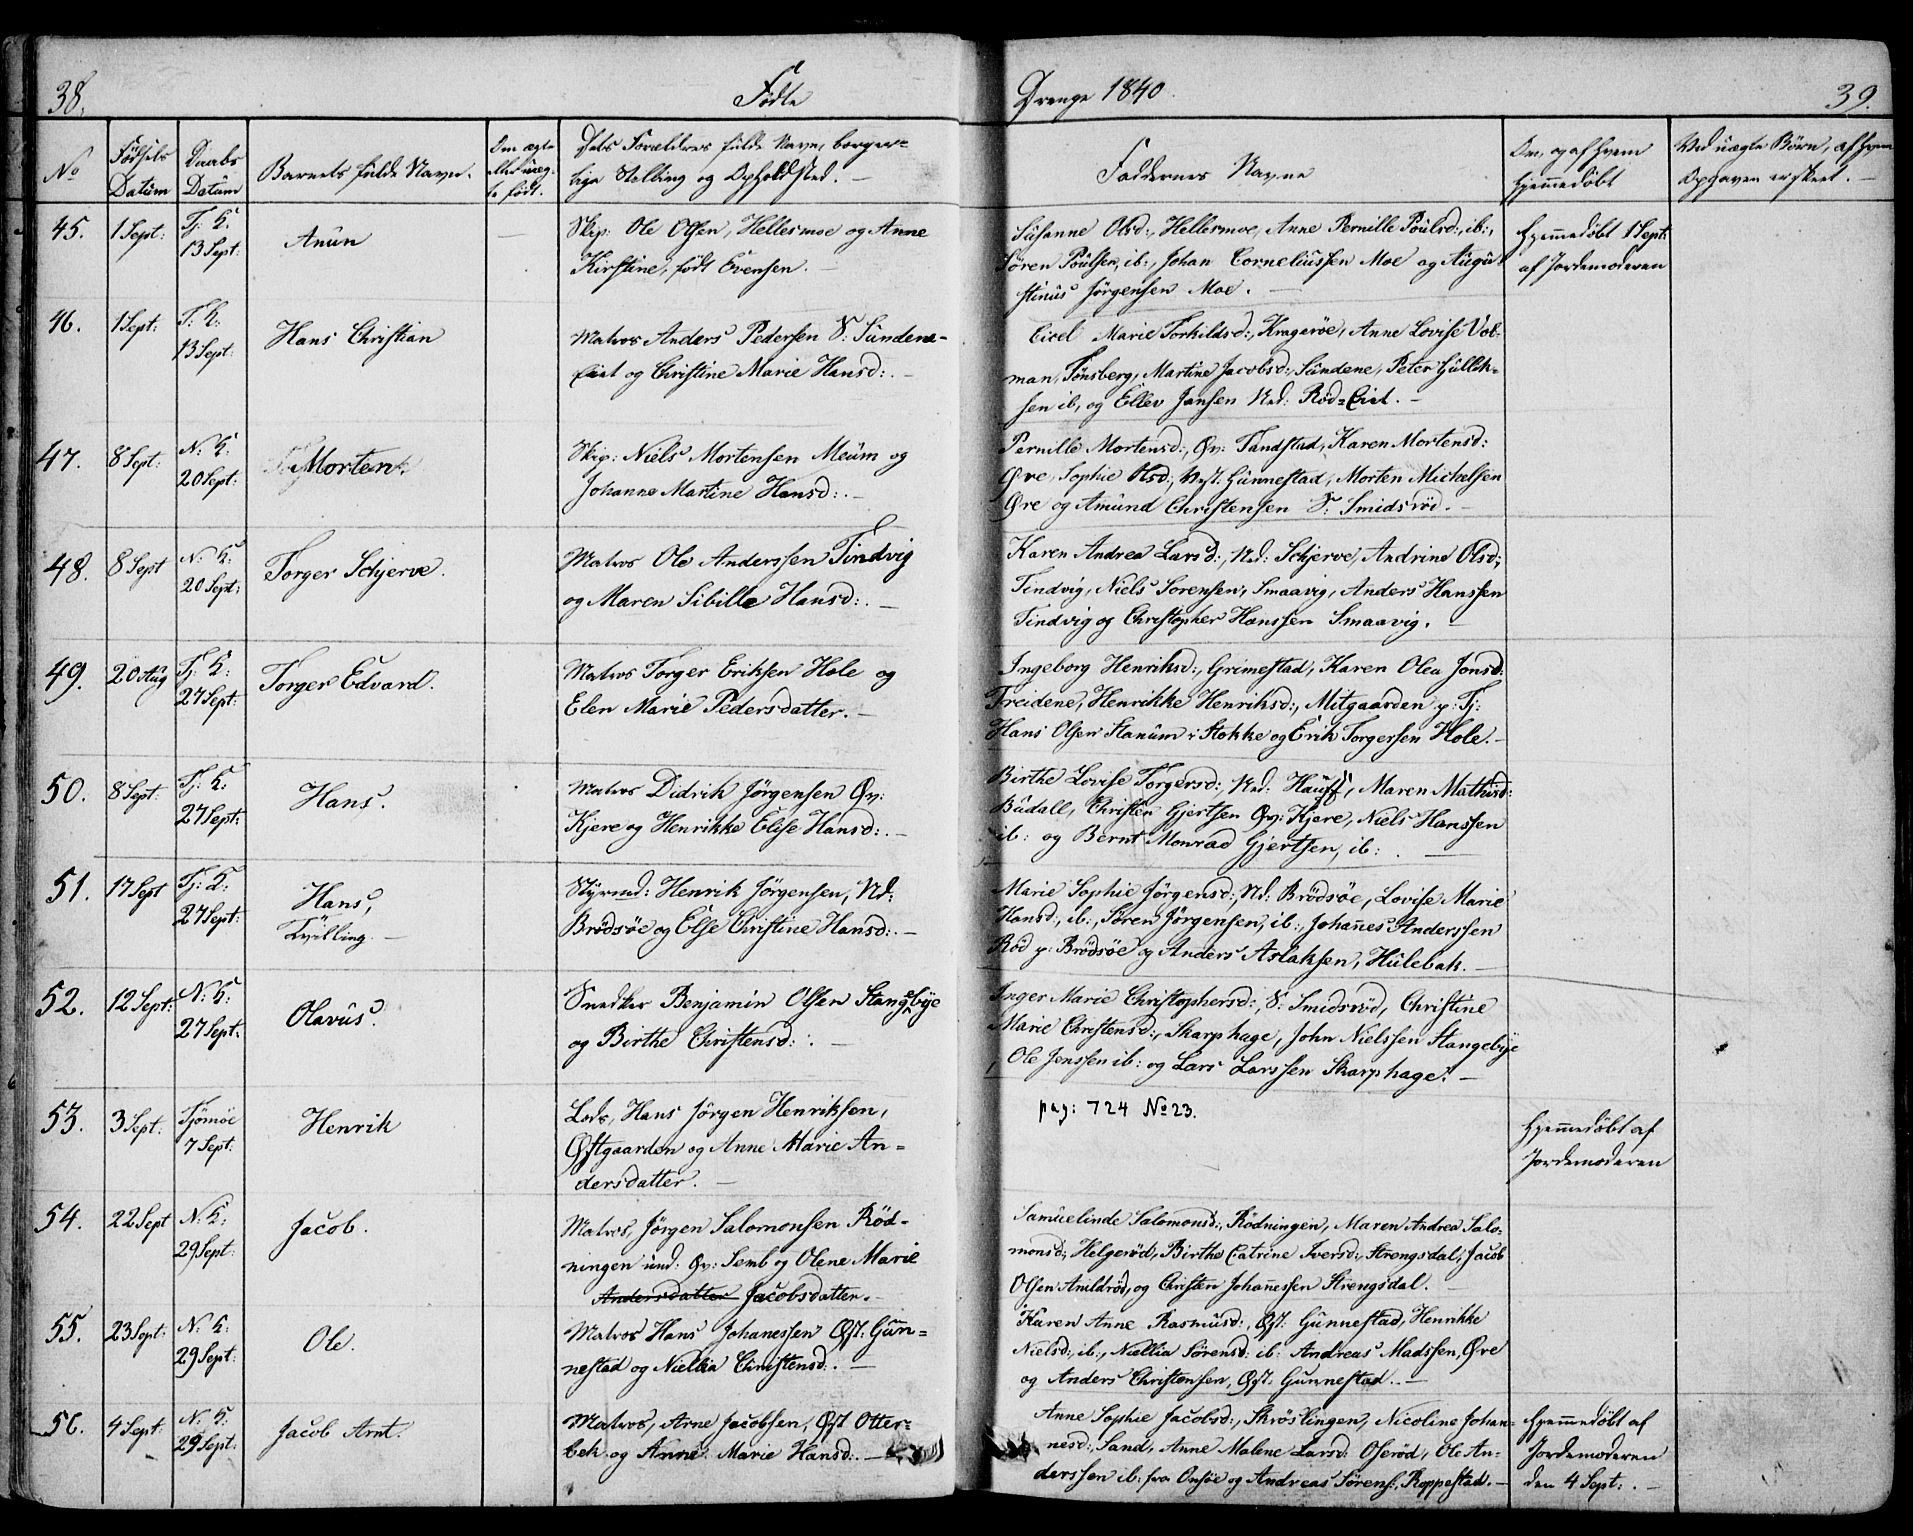 38.
Födte
No
Födsels Datum
Daabs Datum
Barnets fulde Navn.
Om ægte eller uægte født.
Dets Forældres fulde Navne, borger-
lige Stilling og Opholdsted. —
45. 1 Sept: Tj: K: 13 Sept: Anun
Skip: Ole Olsen, Hellesmoe og Anne
Kirstine, født Evensen. —
46. 1 Sept: T: K: 13 Sept: Hans Christian
Matros Anders Pedersen S: Sundene-
Eiet og Christine Marie Hansd:. —
47. 8 Sept: N: K: 20 Sept: Morten.
Skip: Niels Mortensen Meum og
Johanne Martine Hansd:. —
48. 8 Sept N: K: 20 Sept: Torger Schjerve.
Matros Ole Anderssen Tindvig
og Maren Sibille Hansd:. —
49. 20 Aug Tj: K: 27 Sept: Torger Edvard.
Matros Torger Eriksen Hole og
Elen Marie Pedersdatter. —
50. 8 Sept: Tj: K: 27 Sept: Hans.
Matros Didrik Jörgensen Øv:
Kjere og Henrikke Elise Hansd:. —
51. 17 Sept Tj: K: 27 Sept: Hans, Tvilling. —
Styrmd: Henrik Jörgensen, Nd:
Brödsöe og Else Christine Hansd:. —
52. 12 Sept: N: K: 27 Sept: Olavus.
Snedker Benjamin Olsen Stangebye
og Birthe Christensd: . —
53. 3 Sept: Tjömöe 7 Sept: Henrik
Lods, Hans Jörgen Henriksen,
Østgaarden og Anne Marie An-
dersdatter. —
54. 22 Sept N: K: 29 Sept: Jacob.
Matros, Jörgen Salomonsen Röd-
ningen und: Øv: Semb og Olene Marie
Andersdatter Jacobsdatter. —
55. 23 Sept: N: K: 29 Sept: Ole.
Matros Hans Johanessen Øst: Gun-
nestad og Nællia Christensd:. —
56. 4 Sept: N: K: 29 Sept: Jacob Arnt.
Matros, Arne Jacobsen, Øst Otter-
bek og Anne Marie Hansd:. —
Drenge 1840.
39.
Faddernes Navne
Om, og af hvem
hjemmedöbt
Ved uægte Børn, af hvem
Opgaven er skeet. —
Susanne Olsd:, Hellesmoe, Anne Pernille Poulsd:, ib:,
Søren Poulsen, ib:, Johan Corneliussen Moe og Augu-
stinus Jörgensen Moe. —
Hjemmedöbt 1 Sept:
af Jordemoderen
Cicel Marie Torkildsd:, Kragerøe, Anne Lovise Vol-
man, Tönsberg, Martine Jacobsd:, Sundene, Peter Gullik-
sen ib, og Ellev Jansen Nd: Röd-Eiet. —
Pernille Mortensd:, Øv: Tandstad, Karen Mortensd:
Øre, Sophie Olsd:, Vest: Gunnestad, Morten Michelsen
Øre og Amund Christensen S: Smidsröd. —
Karen Andrea Larsd:, Nd: Schjerve, Andrine Olsd:,
Tindvig, Niels Sorensen, Smaavig, Anders Hanssen
Tindvig og Christopher Hanssen Smaavig. —
Ingeborg Henriksd:, Grimestad, Karen Olea Jonsd:
Treidene, Henrikke Henriksd:, Mitgaarden p: Tj:
Hans Olsen Stanum i Stokke og Erik Torgersen Hole. —
Birthe Lovise Torgersd:, Nd: Hauff, Maren Mathisd:
Budall, Christen Gjertsen Øv: Kjere, Niels Hanssen
ib: og Bernt Monrad Gjertsen, ib: . —
Marie Sophie Jörgensd:, Nd: Brödsöe, Lovise Marie
Hansd:, ib:, Søren Jörgensen, ib:, Johannes Anderssen
Röd p: Brödsöe og Anders Aslaksen, Hulebak. —
Inger Marie Christophersd:, S: Smidsröd, Christine
Marie Christensd:, Skarphage, John Nielssen Stangebye
Ole Jenssen ib: og Lars Larssen Skarphage. —
pag: 724 No 23.
Hjemmedöbt af
Jordemoderen
Samuelinde Salomonsd:, Rödningen, Maren Andrea Salo-
monsd:, Helgeröd, Birthe Catrine Iversd:, Strengsdal, Jacob
Olsen Arnildröd, og Christen Johannessen Strengsdal. —
Karen Anne Rasmusd:, Øst: Gunnestad, Henrikke
Nielsd:, ib:, Nællia Sörensd: ib: Andreas Madssen, Øre
og Anders Christensen, Øst: Gunnestad. —
Anne Sophie Jacobsd:, Skröslingen, Nicoline Johan-
nesd:, Sand, Anne Malene Larsd: Oseröd, Ole An-
derssen ib: fra Onsöe og Andreas Sörens:, Roppestad. —
Hjemmedöbt af
Jordemoderen
den 4 Sept: . —